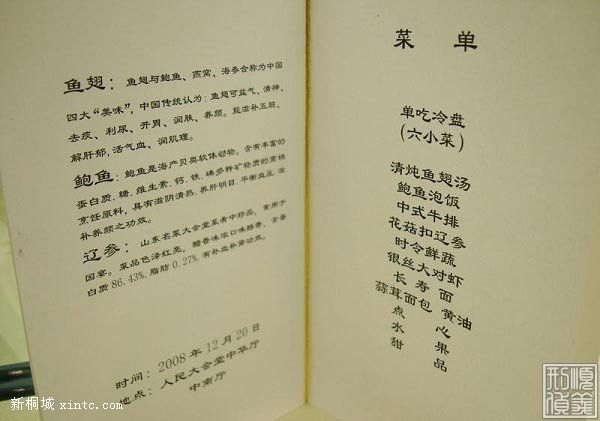 鱼翅：鱼翅与鲍鱼、燕窝、海参合称为中国
四大“美味”，中国传统认为：鱼翅可益气、清神、
去痰、利尿、开胃、润肤、养颜。能滋补五脏，
解肝郁，活气血、润肌理。
鲍鱼：鲍鱼是海产贝类软体动物。含有丰富的
蛋白质.糖.维生素.钙.铁.碘多种矿物质的高档
烹饪原料，具有滋阴清热.养肝明目.平衡血压.滋
补养颜之功效。
辽参：山东名菜大会堂菜肴中珍品，常用于
国宴。菜品色泽红亮，醋香味浓口味醇香，含蛋
白质86.43%.脂肪0.27%.有补血补肾功效。
时间：2008年12月20日
地点：人民大会堂中华厅
中南厅
菜 单
单吃冷盘
(六小菜)
清炖鱼翅汤
鲍鱼泡饭
中式牛排
花菇扣辽参
时令鲜蔬
银丝大对虾
长寿面
蒜茸面包 黄油
点心
水果
甜品
新桐城 xintc.com